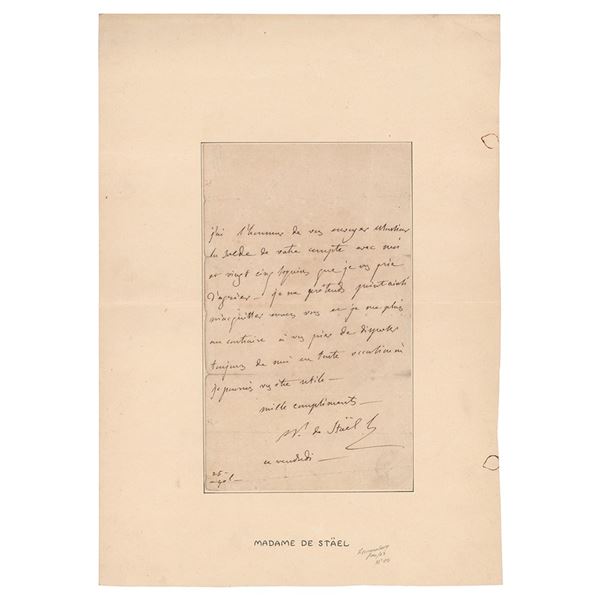 j'ai l'honneur de vs envoyer
le solde de votre compte avec moi
et vingt cinq louis que je vs prie
d'agréer — je ne prétends point ainsi
m'acquitter envers vous et je me plais
au contraire à vs prier de disposer
toujours de moi en toute occasion où
je pourrois vs être utile —
mille compliments —
N. de Staël
ce vendredi —
25 —
MADAME DE STÄEL